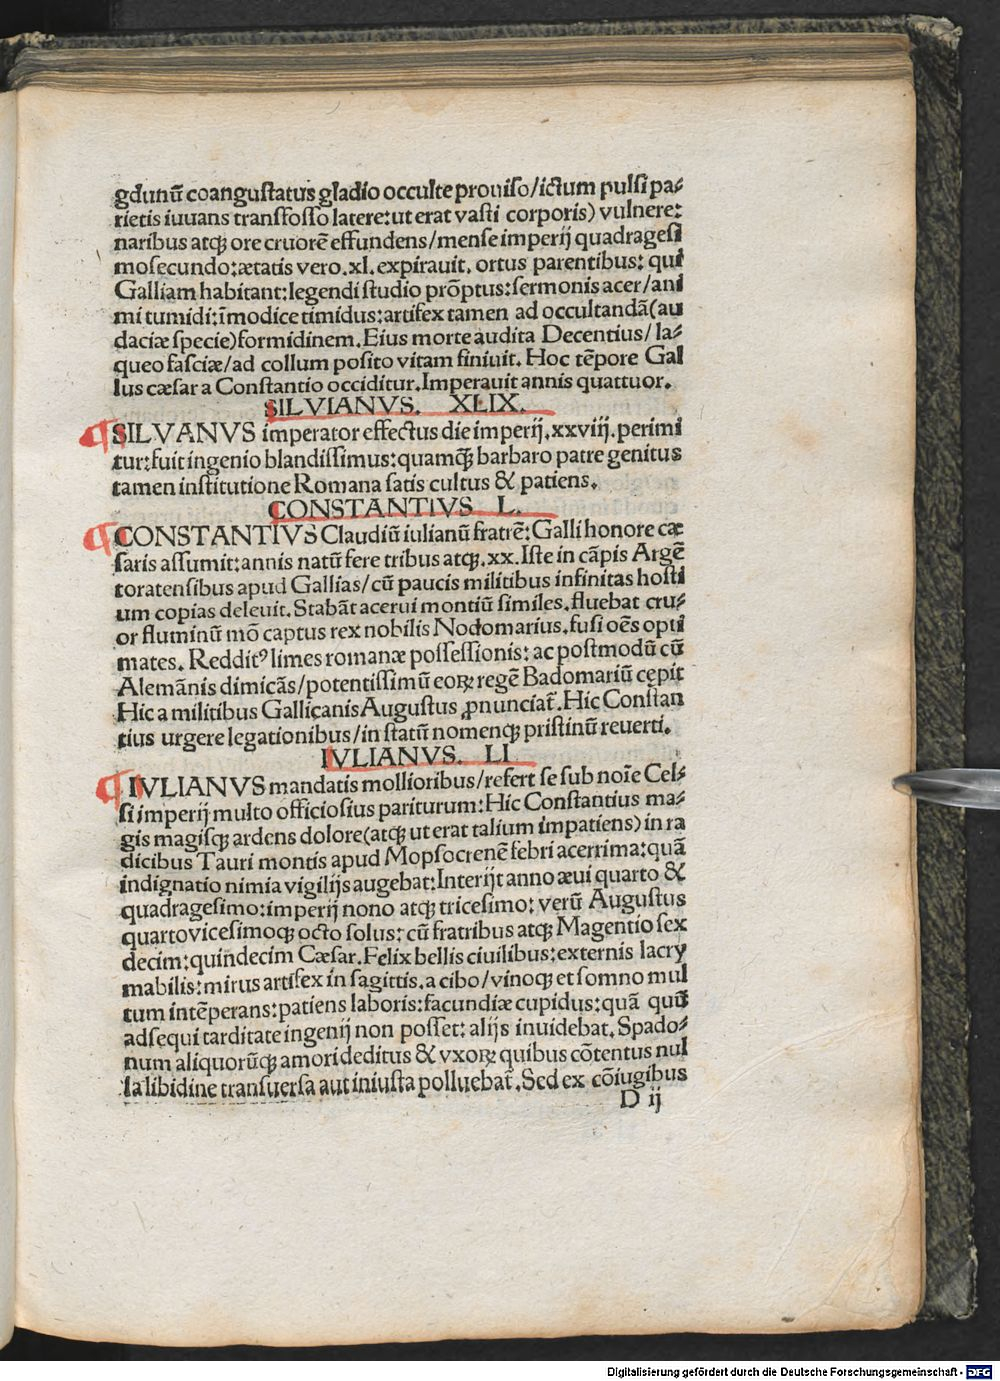 gdunū coangustatus gladio occulte prouiso/ictum pulsi pa⸗
rietis iuuans transfosso latere:ut erat vasti corporis) vulnere:
naribus atq̃ ore cruorē effundens/mense imperij quadragesi
mosecundo:ætatis vero.xl.expirauit. ortus parentibus: qui
Galliam habitant:legendi studio prōptus:sermonis acer/ani
mi tumidi:īmodice timidus:artifex tamen ad occultandā(au
daciæ specie)formidinem.Eius morte audita Decentius/ la⸗
queo fasciæ/ad collum posito vitam finiuit. Hoc tēpore Gal
lus cæsar a Constantio occiditur.Imperauit annis quattuor.
SILVIANVS. XLIX.
¶SILVANVS imperator effectus die imperij.xxviij.perimi
tur:fuit ingenio blandissimus:quamq̃ barbaro patre genitus
tamen institutione Romana satis cultus & patiens.
CONSTANTIVS L.
¶CONSTANTIVS Claudiū iulianū fratrē:Galli honore cæ
saris assumit:annis natū fere tribus atq̃.xx.Iste in cāpis Argē
toratensibus apud Gallias/cū paucis militibus infinitas hosti
um copias deleuit.Stabāt acerui montiū similes.fluebat cru⸗
or fluminū mō captus rex nobilis Nodomarius.fusi oēs opti
mates. Reddit⁹ limes romanæ possessionis: ac postmodū cū
Alemānis dimicās/potentissimū eoꝝ regē Badomariū cępit
Hic a militibus Gallicanis Augustus ꝓnunciat̃.Hic Constan
tius urgere legationibus/in statū nomenq̃ pristinū reuerti.
IVLIANVS. LI
¶IVLIANVS mandatis mollioribus/refert se sub noīe Cel⸗
si imperij multo officiosius pariturum:Hic Constantius ma⸗
gis magisq̃ ardens dolore(atq̃ ut erat talium impatiens)in ra
dicibus Tauri montis apud Mopsocrenē febri acerrima:quā
indignatio nimia vigilijs augebat:Interijt anno æui quarto &
quadragesimo:imperij nono atq̃ tricesimo: verū Augustus
quartovicesimoq̃ octo solus: cū fratribus atq̃ Magentio sex
decim:quindecim Cæsar.Felix bellis ciuilibus:externis lacry
mabilis:mirus artifex in sagittis.a cibo/vinoq̃ et somno mul
tum intēperans:patiens laboris:facundiæ cupidus:quā quū
adsequi tarditate ingenij non posset: alijs inuidebat.Spado⸗
num aliquorūq̃ amori deditus & vxoꝝ quibus cōtentus nul
la libidine transuersa aut iniusta polluebat̃.Sed ex cōiugibus
D ij
Digitalisierung gefördert durch die Deutsche Forschungsgemeinschaft - DFG